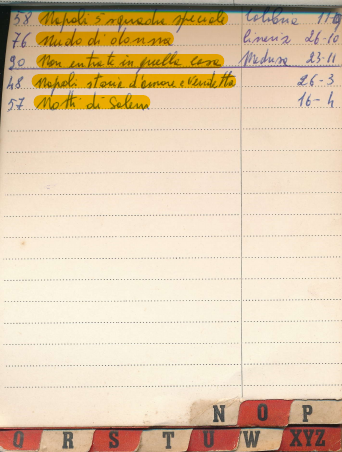 58 Napoli 5 squadra speciale Colibrì 11-9
76 Nudo di donna Cineriz 26-10
90 Non entrate in quella casa Medusa 23-11
48 Napoli storia d'amore e vendetta 26-3
57 Notti di Salem 16-4
N O P
Q R S T U W XYZ